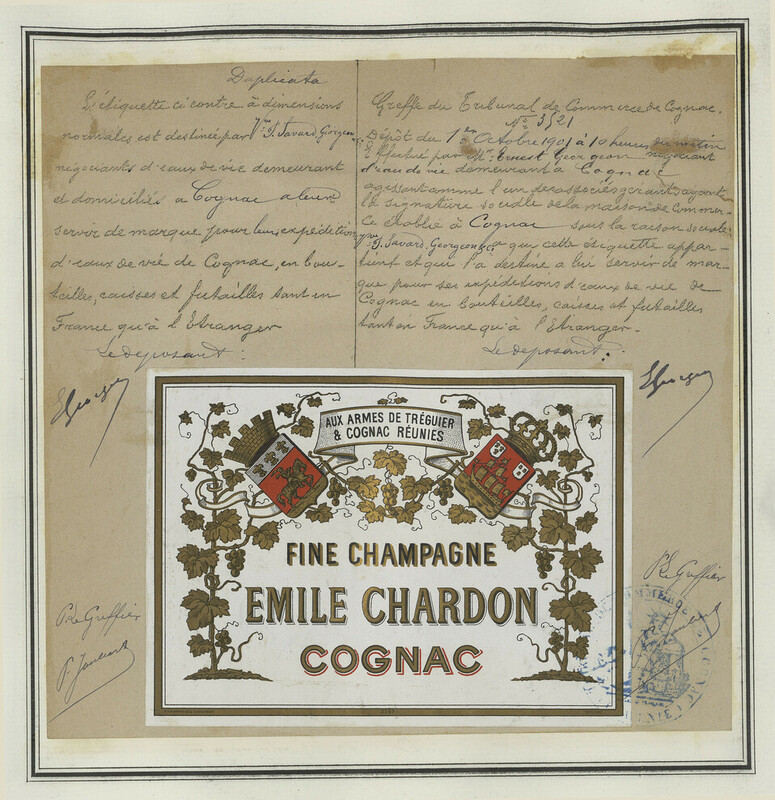 Duplicata
L'étiquette ci contre à dimensions
normales est destinée par Vve J. Savard, Georgeon &
négociants d'eaux de vie demeurant
et domiciliés à Cognac a leur
servir de marque pour leurs expéditions
d'eaux de vie de Cognac, en bou-
teilles, caisses et futailles tant en
France qu'à l'Etranger
Le déposant :
EGeorgeon
P. Le Greffier
Greffe du Tribunal de Commerce de Cognac.
No 3521
Dépôt du 1er Octobre 1901 à 10 heures du matin
Effectué par Mr. Ernest Georgeon négociant
d'eau de vie demeurant à Cognac
agissant comme l'un des associés gérants ayant
la signature sociale de la maison de commer-
ce établie à Cognac sous la raison sociale
Vve J. Savard, Georgeon & que cette étiquette appar-
tient et qu'il l'a destiné a lui servir de mar-
que pour ses expéditions d'eaux de vie de
Cognac en bouteilles, caisses et futailles
tant en France qu'à l'Etranger.-
Le déposant :
EGeorgeon
P. Le Greffier
AUX ARMES DE TRÉGUIER
& COGNAC RÉUNIES
FINE CHAMPAGNE
EMILE CHARDON
COGNAC